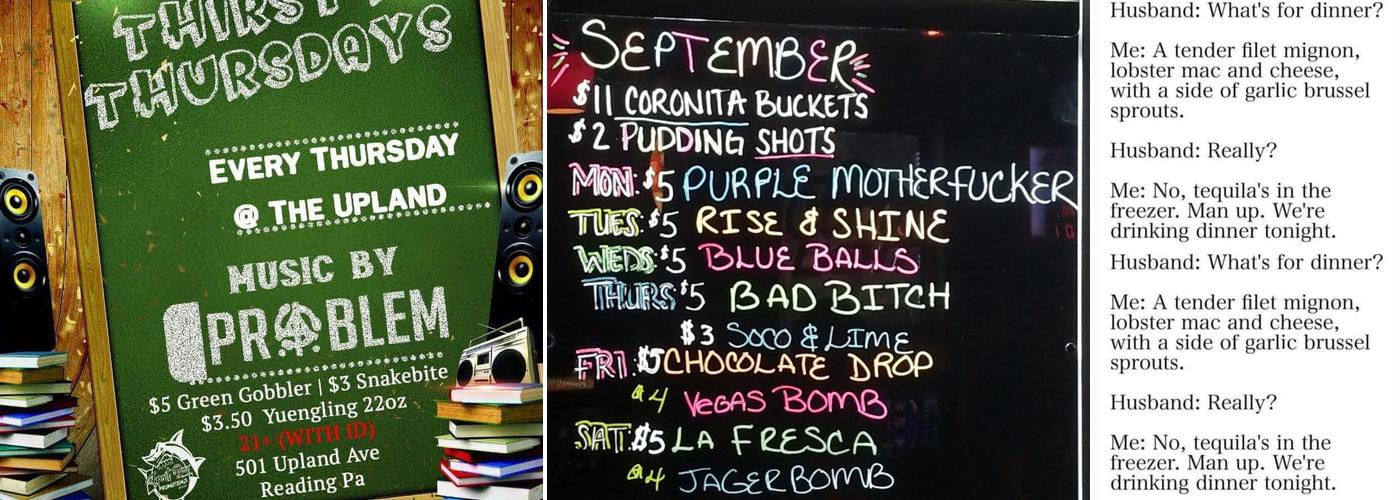 THIRSTY
THURSDAYS
EVERY THURSDAY
@ THE UPLAND
MUSIC BY
PROBLEM
$5 Green Gobbler | $3 Snakebite
$3.50 Yuengling 22oz
21+ (WITH ID)
501 Upland Ave
Reading Pa
SEPTEMBER
$11 CORONITA BUCKETS
$2 PUDDING SHOTS
MON: $5 PURPLE MOTHERFUCKER
TUES: $5 RISE & SHINE
WEDS: $5 BLUE BALLS
THURS $5 BAD BITCH
$3 SOCO & LIME
FRI: $5 CHOCOLATE DROP
$4 VEGAS BOMB
SAT: $5 LA FRESCA
$4 JAGERBOMB
Husband: What's for dinner?
Me: A tender filet mignon,
lobster mac and cheese,
with a side of garlic brussel
sprouts.
Husband: Really?
Me: No, tequila's in the
freezer. Man up. We're
drinking dinner tonight.
Husband: What's for dinner?
Me: A tender filet mignon,
lobster mac and cheese,
with a side of garlic brussel
sprouts.
Husband: Really?
Me: No, tequila's in the
freezer. Man up. We're
drinking dinner tonight.